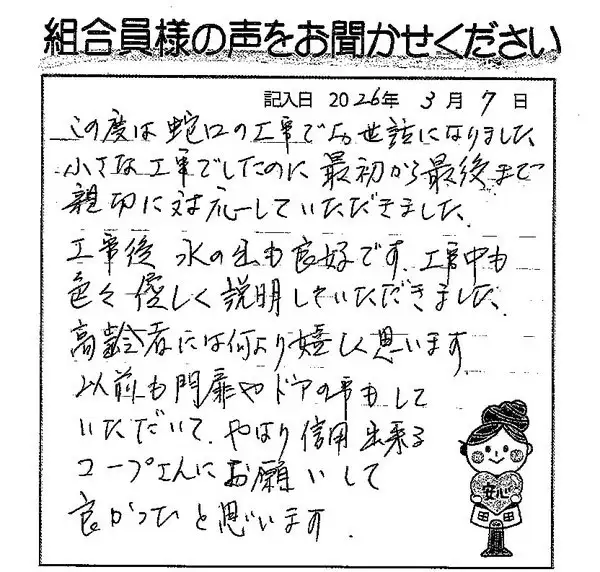 組合員様の声をお聞かせください
記入日 2026年 3月 7日
この度は蛇口の工事でお世話になりました
小さな工事でしたのに最初から最後まで
親切に対応していただきました
工事後 水の出も良好です、工事中も
色々優しく説明していただきました、
高齢者には何より嬉しく思います
以前も門扉やドアの事もして
いただいて、やはり信用出来る
コープさんにお願いして
良かったと思います
安心